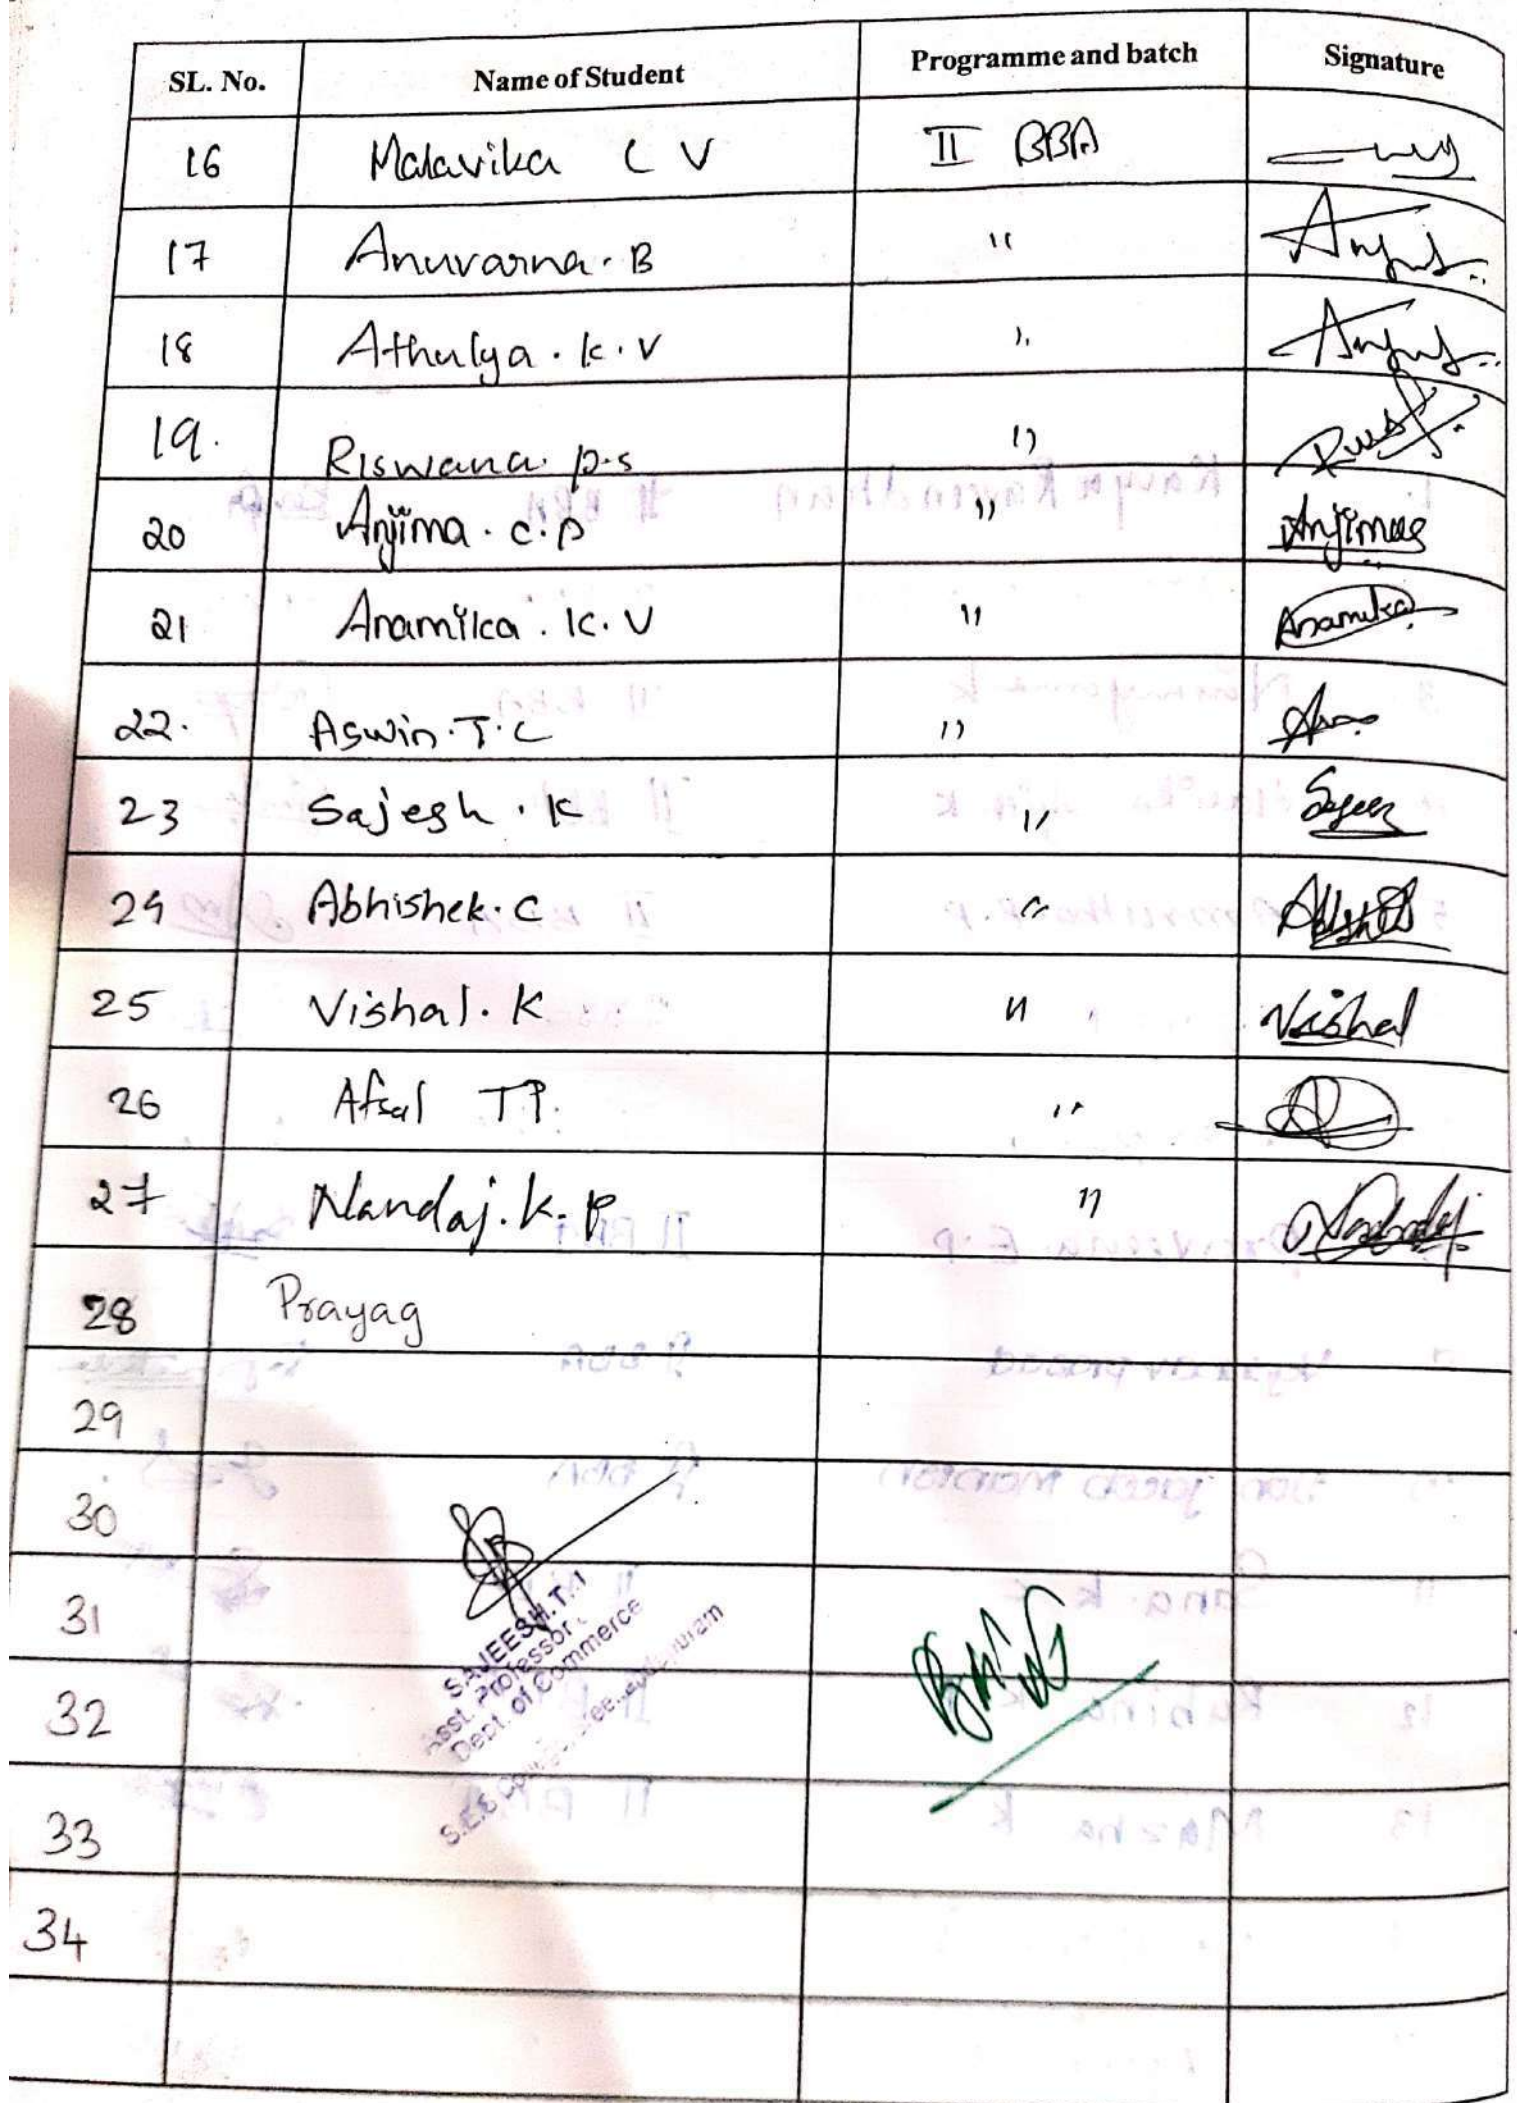 SL. No. Name of Student Programme and batch Signature
16 Malavika C V II BBA
17 Anuvarna. B "
18 Athulya. K. V "
19. Riswana p.s "
20 Anjima. C. P " Anjima
21 Anamika. K. V " Anamika
22. Aswin. T. C "
23 Sajesh. K "
24 Abhishek. C "
25 Vishal. K " Vishal
26 Afsal TP. "
27 Nandaj. K. P "
28 Prayag
29
30
31
32
33
34
SAJEESH. T.
Asst. Professor
Dept. of Commerce